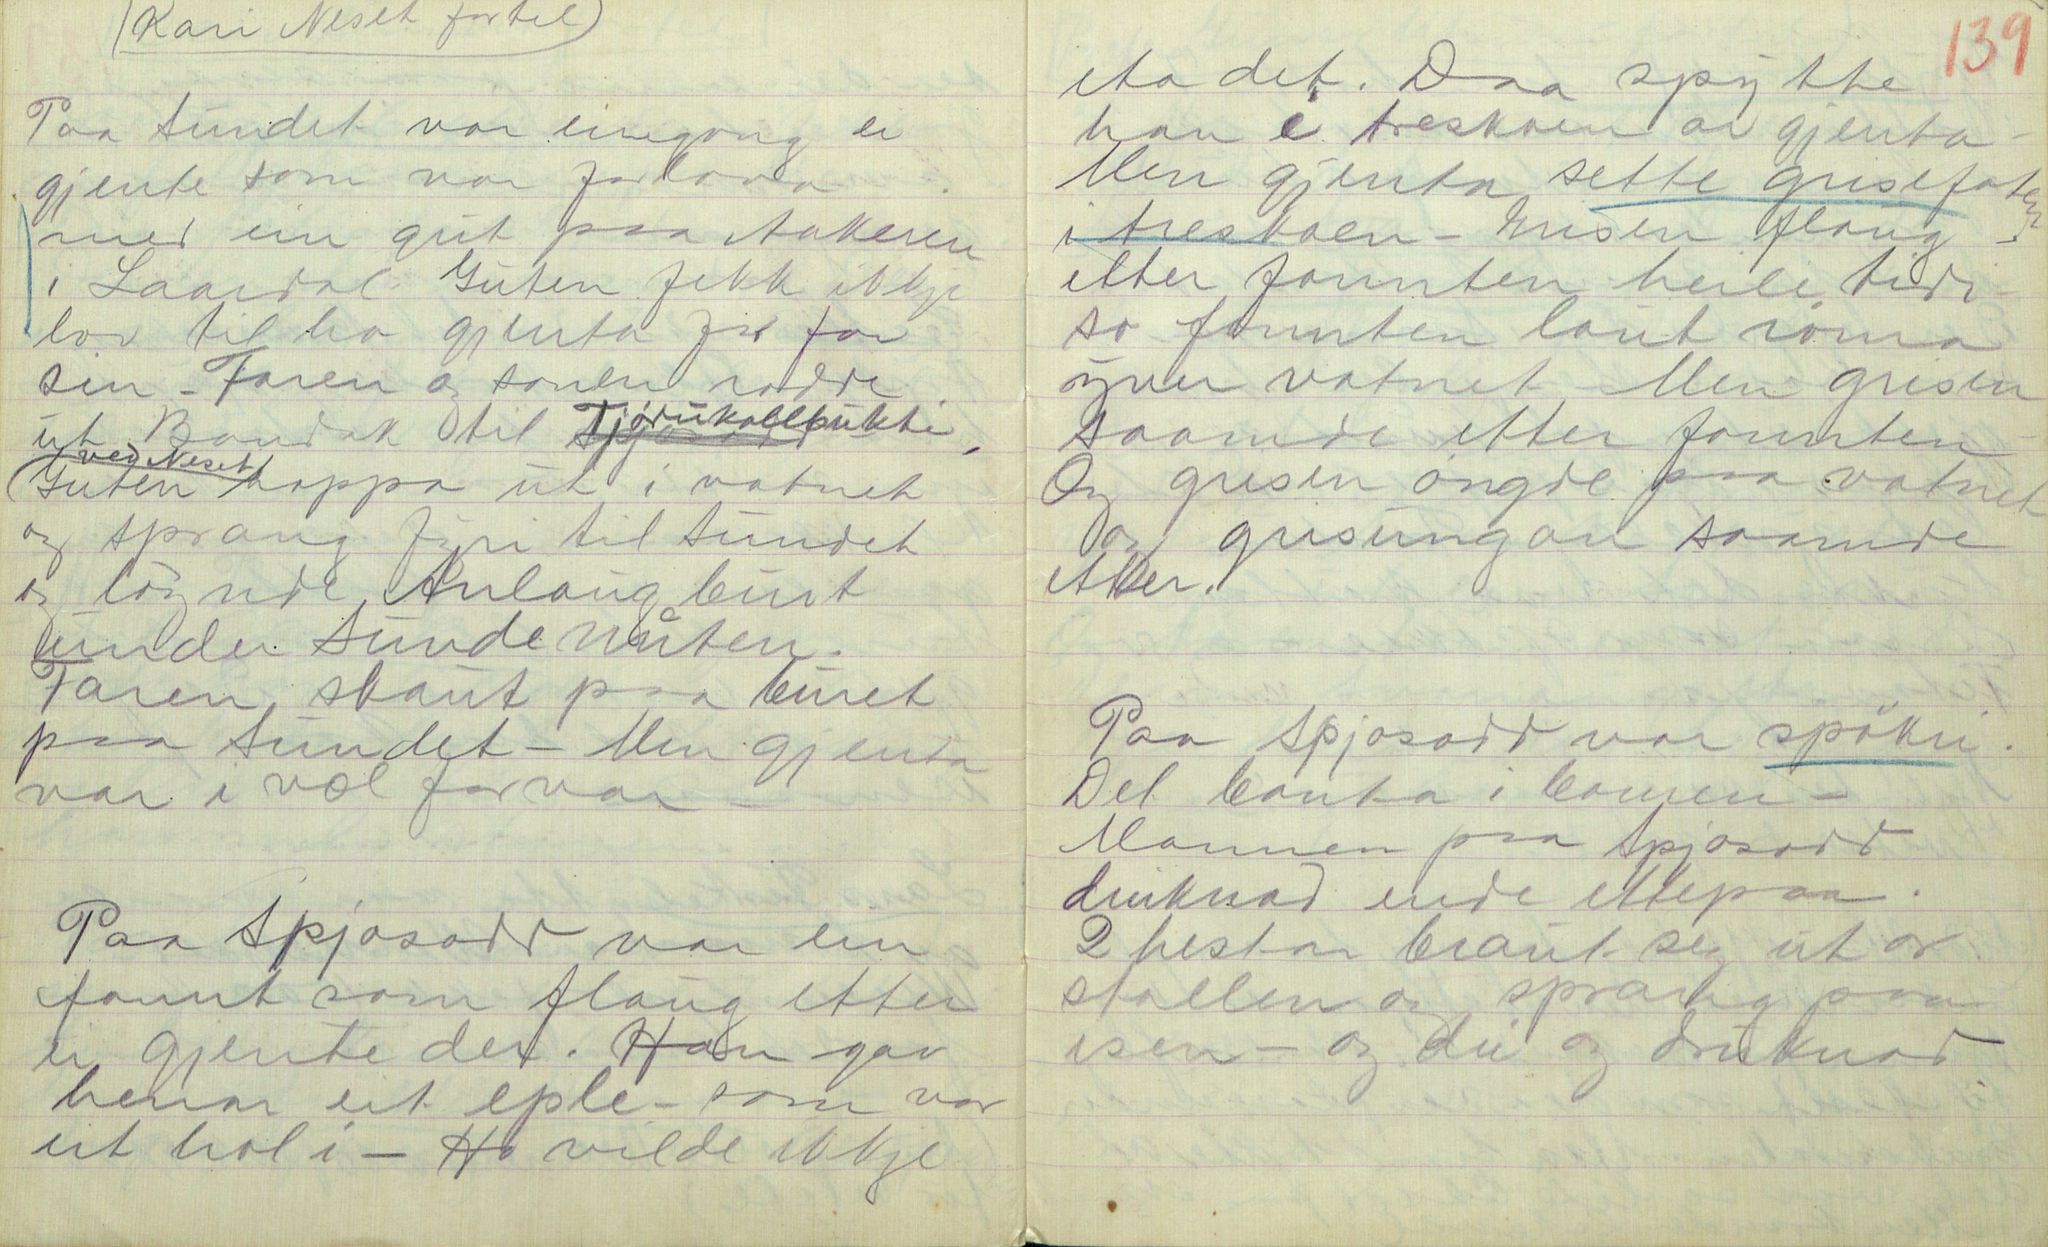 (Kari Neset fortel)
Paa Sundet var eingong ei
gjente som var forlova
med ein gut paa Aakeren
i Laardal. Guten fekk ikkje
lov til ha gjenta fyr far
sin - Faren og sonen rodde
ut Bandak til Tjørukallbukti,
ved Neset
Guten hoppa ut i vatnet
og sprang fyri til Sundet
og løynde Anlaug burt
under Sundenuten.
Faren skaut paa buret
paa Sundet - Men gjenta
var i væl forvar -
Paa Spjosodd var ein
fannt som flaug etter
ei gjente der. Han gav
henar eit eple - som var
eit hol i - Ho vilde ikkje
139
eta det. Daa spytte
han i treskoen ar gjenta -
Men gjenta sette grisefaten
i treskoen - Grisen flaug
etter fannten heile tidi -
so fannten laut røma
øyver vatnet Men grisen
saamde etter fannten -
Og grisen ongde paa vatnet
og grisungan saamde
etter.
Paa Spjosodd var spøkri.
Det banka i bomen -
Mannen paa Spjosodd
druknad ende ettepaa.
2 hestar braut seg ut or
stallen og sprang paa
isen - og dei og druknad